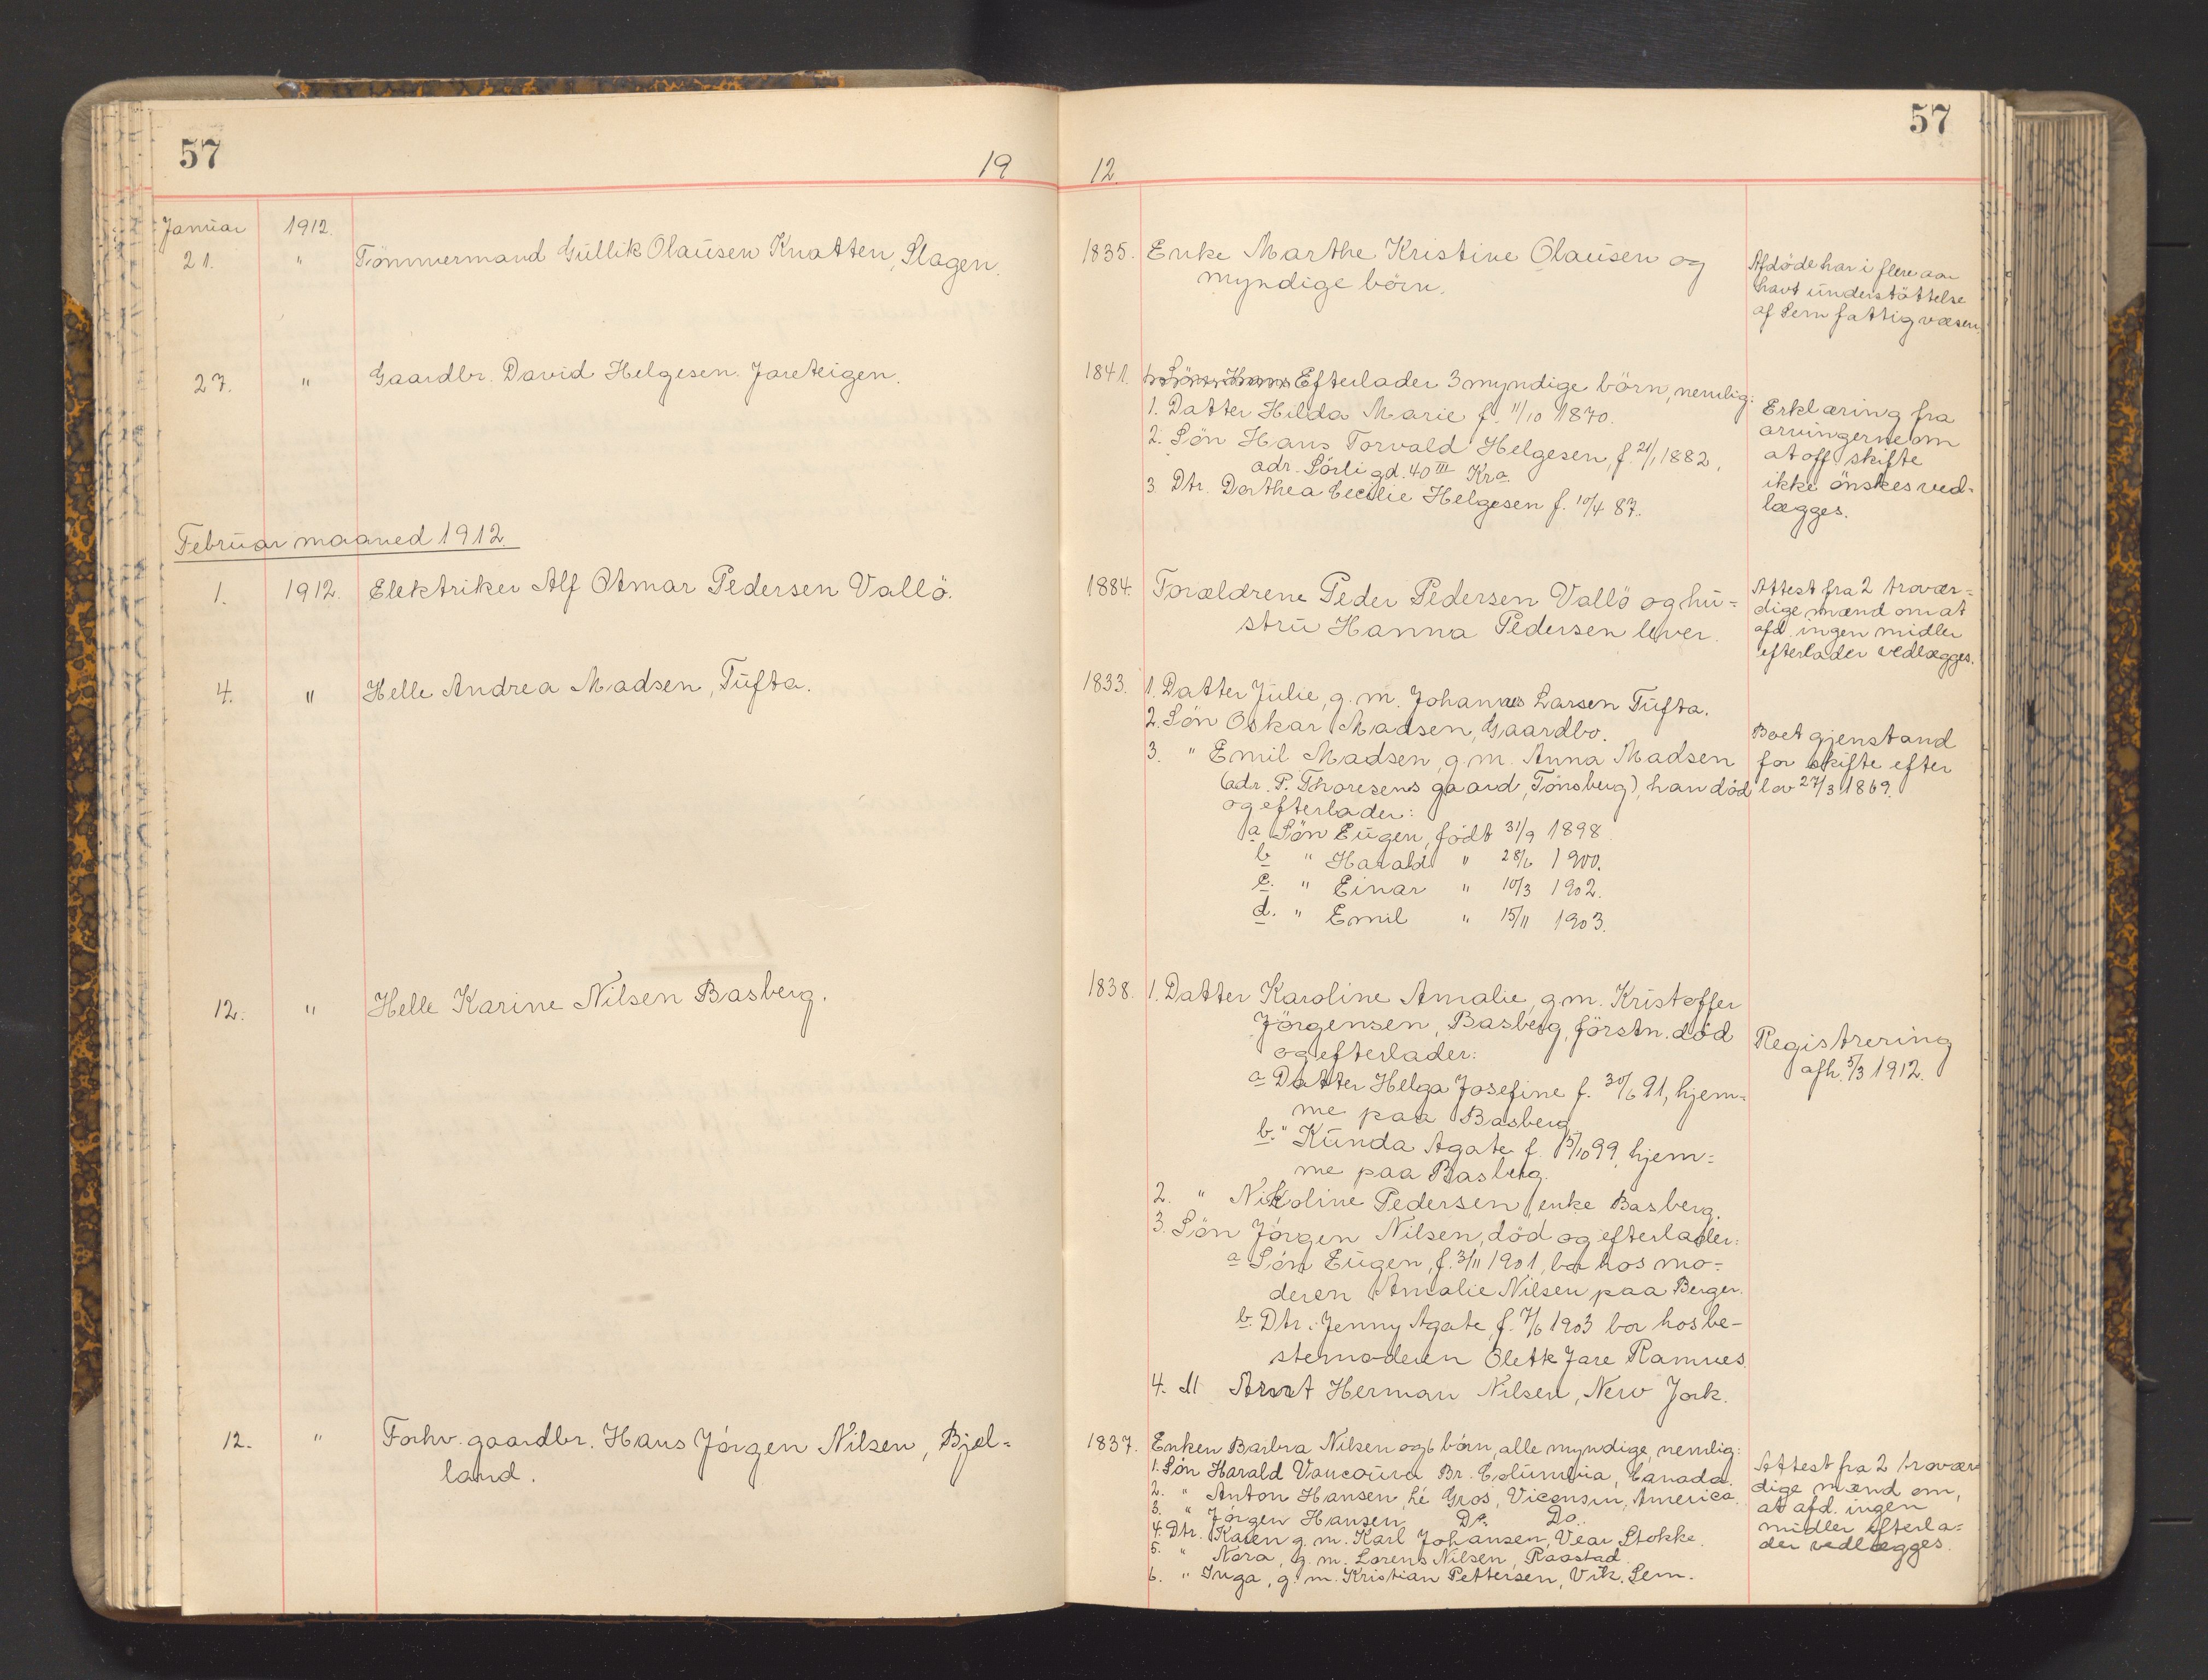 57
19
Januar 1912.
21. " Tömmermand Gullik Olausen Knatten, Slagen.
27. " Gaardbr. David Helgesen. Jareteigen.
Februar maaned 1912.
1. 1912. Elektriker Alf Otmar Pedersen Vallö.
4. " Helle Andrea Madsen, Tufta.
12. " Helle Karine Nilsen Basberg.
12. " Forhv. gaardbr. Hans Jörgen Nilsen, Bjel=
land.
57
12.
1835. Enke Marthe Kristine Olausen og
myndige börn.
Afdöde har i flere aar
havt understöttelse
af Sem fattigvæsen.
1841. Efterlader 3 myndige börn, nemlig:
1. Datter Hilda Marie f. 11/10 1870.
2. Sön Hans Torvald Helgesen, f. 21/1 1882,
adr. Sörligd. 40 III Kra.
3. Dtr. Dorthea Cecilie Helgesen f. 10/4 87.
Erklæring fra
arvingerne om
at off. skifte
ikke önskes ved-
lægges.
1884. Forældrene Peder Pedersen Vallö og hu=
stru Hanna Pedersen lever.
Attest fra 2 trovær=
dige mænd om at
afd. ingen midler
efterlader vedlægges.
1833. 1. Datter Julie, g. m. Johannes Larsen Tufta.
2. Sön Oskar Madsen, Gaardbo.
3. " Emil Madsen, g. m. Anna Madsen
(adr. P. Thoresens gaard, Tönsberg), han död
og efterlader:
a Sön Eugen, födt 31/9 1898.
b " Harald " 28/6 1900.
c. " Einar " 10/3 1902.
d. " Emil " 15/11 1903.
Boet gjenstand
for skifte efter
lov 27/3 1869.
1838. 1. Datter Karoline Amalie, g. m. Kristoffer
Jörgensen, Basberg, förstn. död
og efterlader:
a Datter Helga Josefine f. 30/6 91, hjem=
me paa Basberg
b. " Kunda Agate f. 15/10 99, hjem=
me paa Basberg.
2. " Nikoline Pedersen, enke Basberg.
3. Sön Jörgen Nilsen, död og efterlader:
a Sön Eugen, f. 3/11 1901, bor hos mo=
deren Amalie Nilsen paa Berger.
b. Dtr. Jenny Agate, f. 7/6 1903 bor hos be-
stemoderen Olette Jare Ramnes.
4. " Herman Nilsen, New York.
Registrering
afh. 5/3 1912.
1837. Enken Barbra Nilsen og 6 börn, alle myndige, nemlig:
1. Sön Harald Vancouver Br. Columbia, Canada.
2. " Anton Hansen, Lé Gros, Viconsin, America.
3. " Jörgen Hansen Do. Do.
4. Dtr. Karen g. m. Karl Johansen, Vear Stokke.
5. " Nora, g. m. Lorens Nilsen, Raastad.
6. " Inga, g. m. Kristian Pettersen, Vik. Sem.
Attest fra 2 trovær
dige mænd om,
at afd. ingen
midler efterla=
der vedlægges.